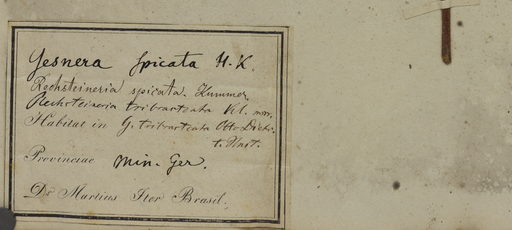 Gesnera spicata H. K.
Rechsteineria spicata. Kummer
Rechsteineria tribracteata Kl. msn.
Habitat in G. tribracteata Otto Dietr.
t. Hnst.
Provinciae Min. Ger.
Dr. Martius Iter Brasil.